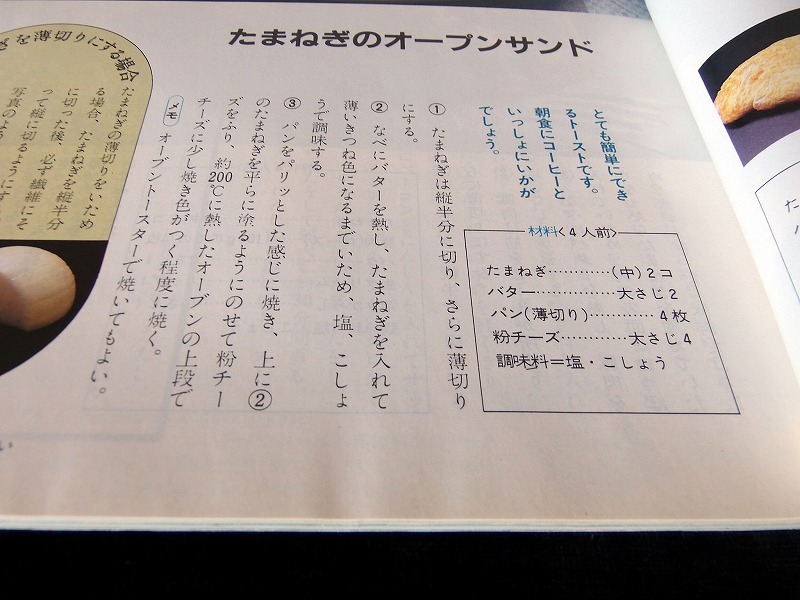 たまねぎのオーブンサンド
とても簡単にでき
るトーストです。
朝食にコーヒーと
いっしょにいかが
でしょう。
材料<4人前>
たまねぎ…………(中)2コ
バター……………大さじ2
パン(薄切り)…………4枚
粉チーズ…………大さじ4
調味料=塩・こしょう
① たまねぎは縦半分に切り、さらに薄切り
にする。
② なべにバターを熱し、たまねぎを入れて
薄いきつね色になるまでいため、塩、こしょ
うで調味する。
③ パンをパリッとした感じに焼き、上に②
のたまねぎを平らに塗るようにのせて粉チー
ズをふり、約200℃に熱したオーブンの上段で
チーズに少し焼き色がつく程度に焼く。
メモ オーブントースターで焼いてもよい。
を薄切りにする場合
たまねぎの薄切りをいため
る場合、たまねぎを縦半分
に切った後、必ず繊維にそ
って縦に切るようにす
写真のよう